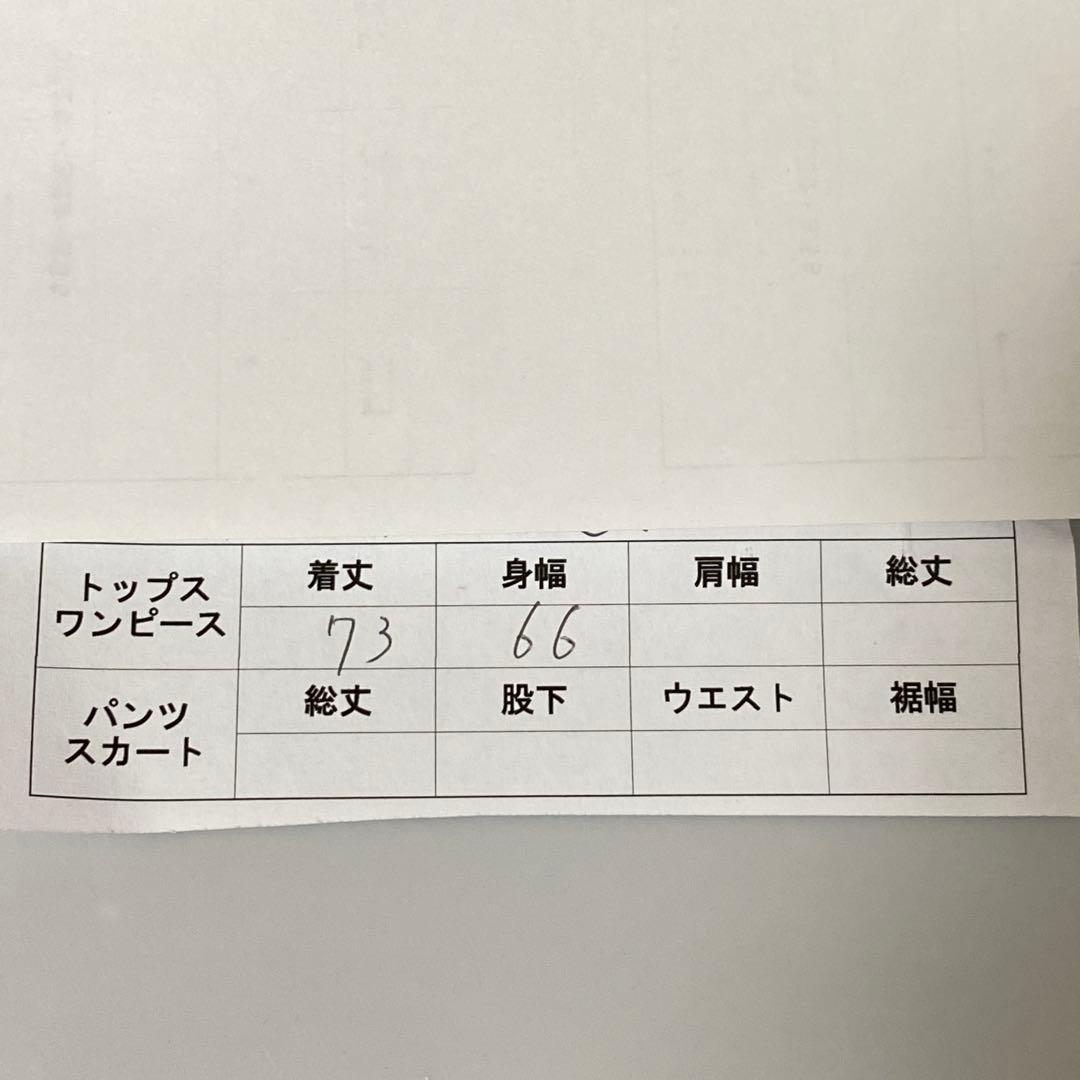 トップス
ワンピース
着丈 身幅 肩幅 総丈
73 66
パンツ
スカート
総丈 股下 ウエスト 裾幅